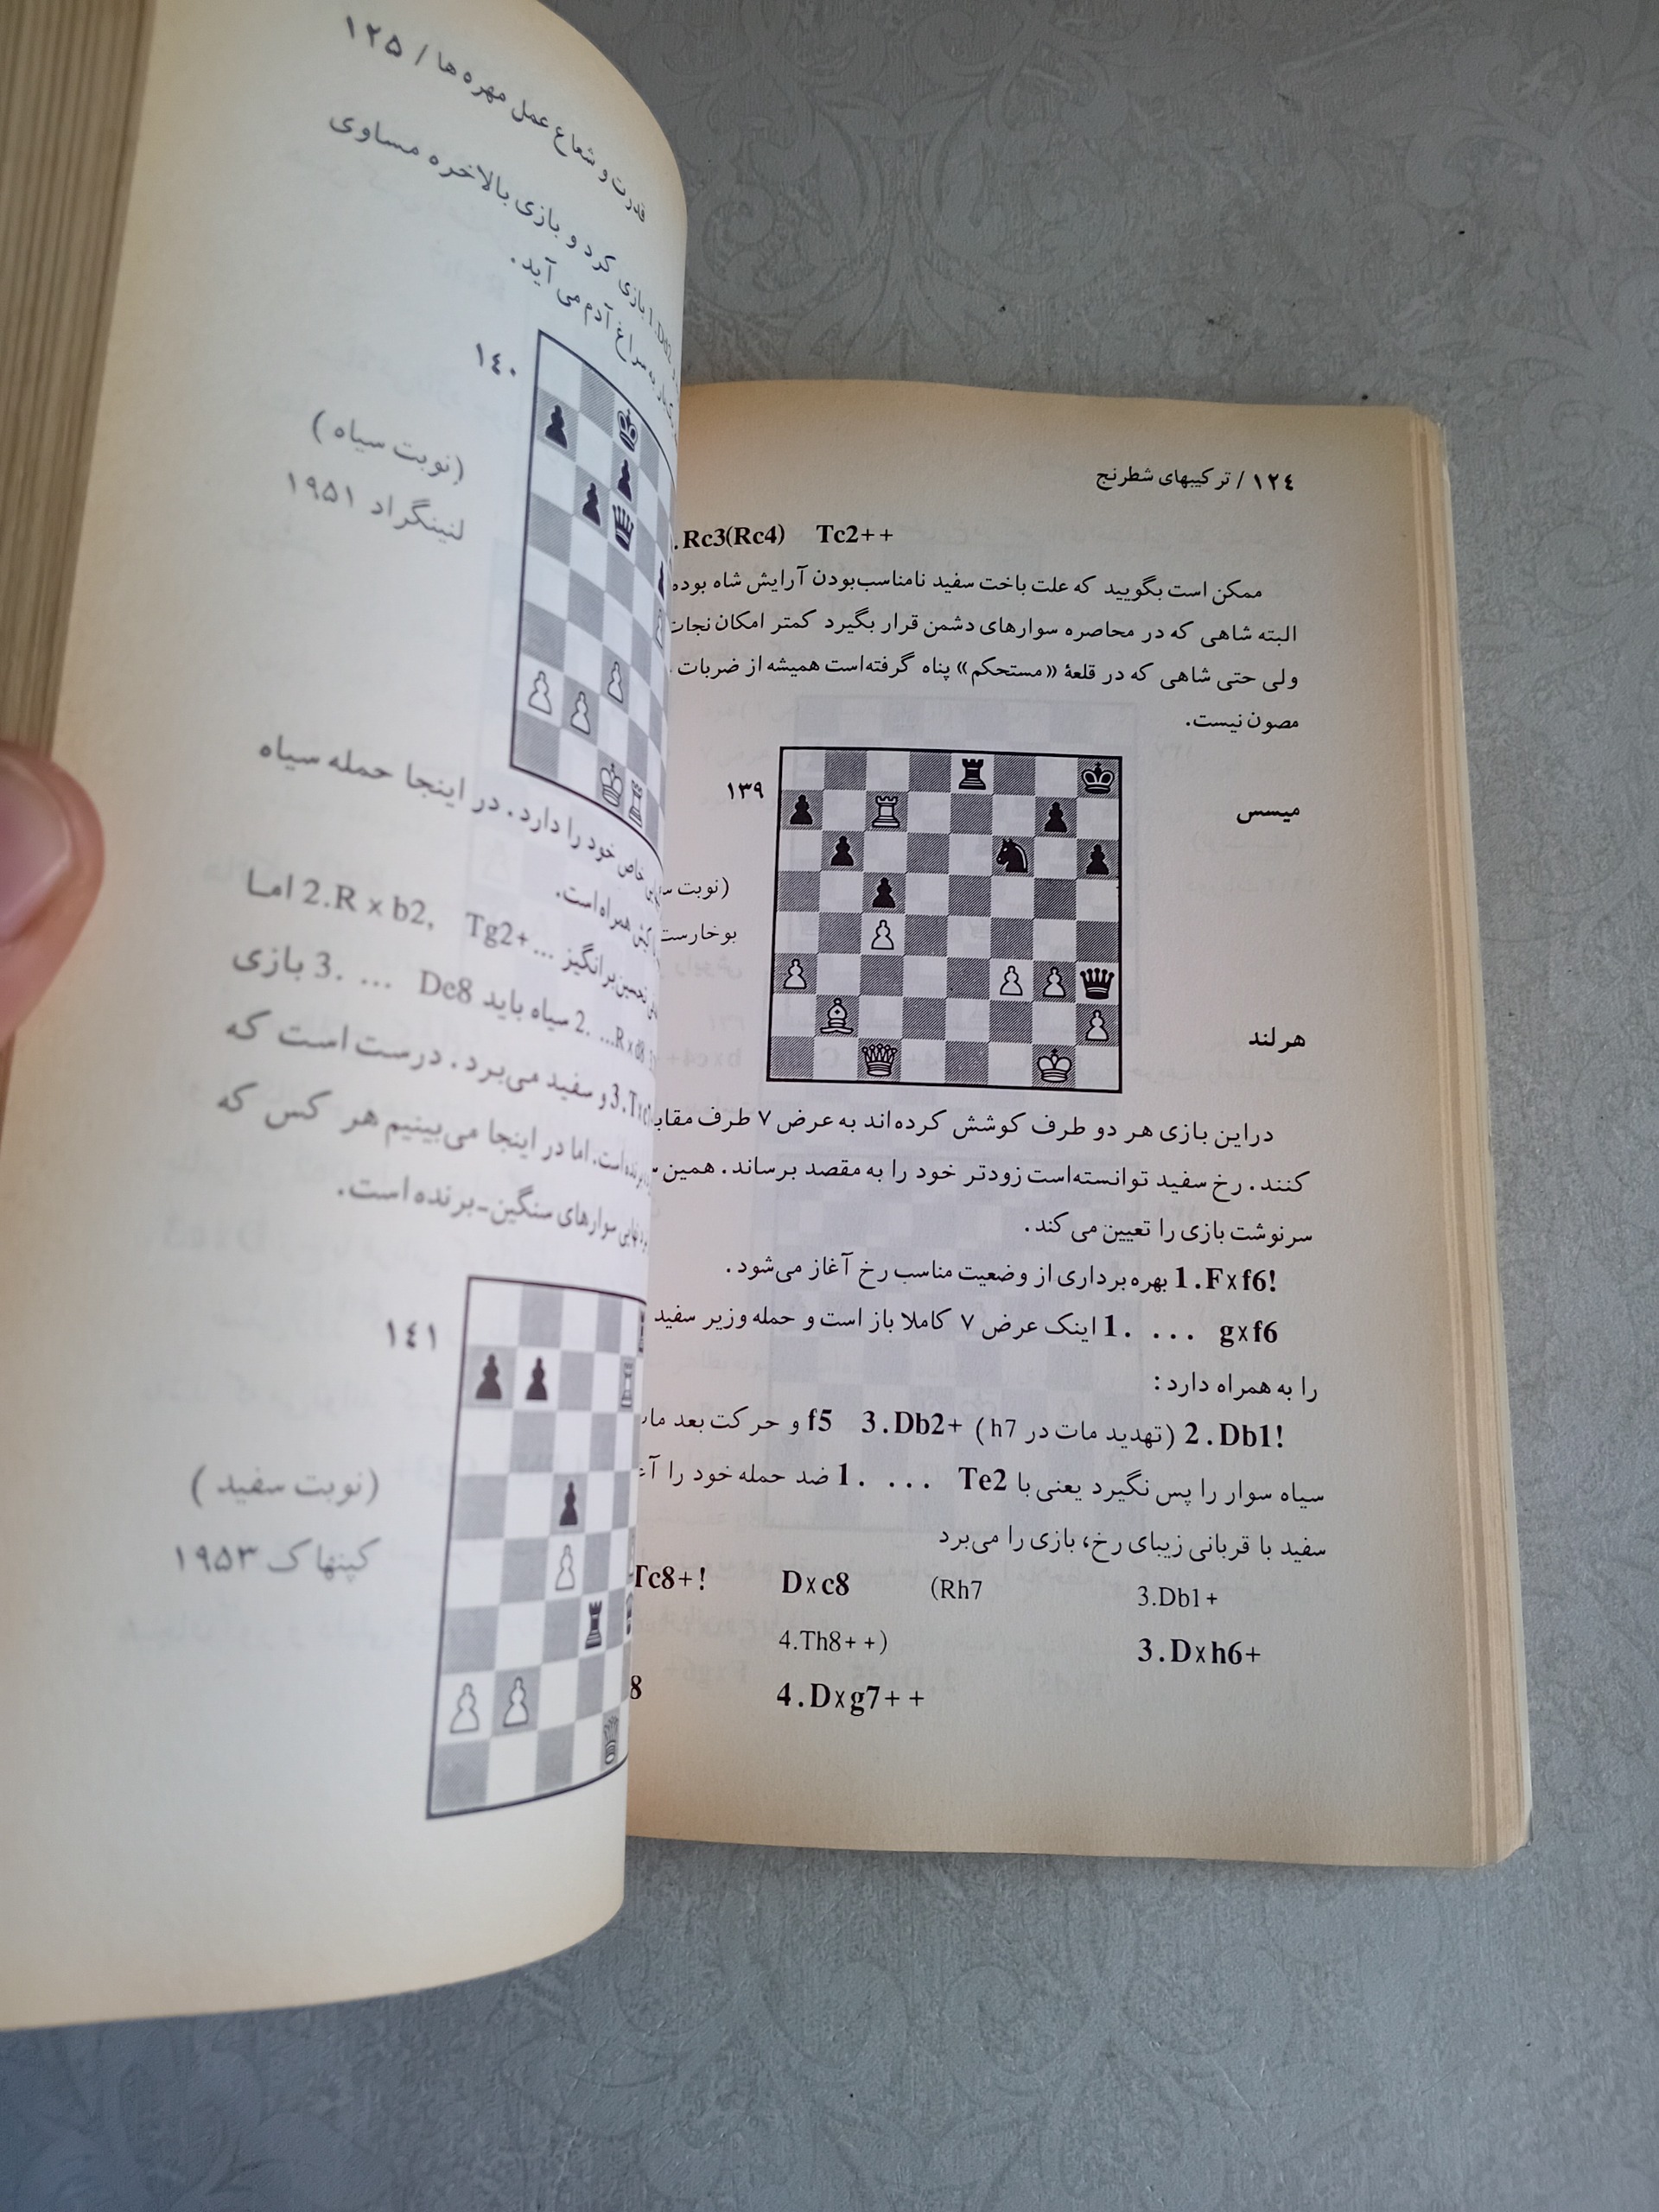 ۱۲٤ / ترکیبهای شطرنج
Rc3(Rc4) Tc2++
ممکن است بگویید که علت باخت سفید نامناسب‌بودن آرایش شاه بوده
البته شاهی که در محاصره سوارهای دشمن قرار بگیرد کمتر امکان نجات
ولی حتی شاهی که در قلعهٔ «مستحکم» پناه گرفته‌است همیشه از ضربات
مصون نیست.
۱۳۹
میسس
(نوبت
بوخارست
هرلند
دراین بازی هر دو طرف کوشش کرده‌اند به عرض ۷ طرف
کنند. رخ سفید توانسته‌است زودتر خود را به مقصد برساند. همین
سرنوشت بازی را تعیین می‌کند.
1.Fxf6! بهره‌برداری از وضعیت مناسب رخ آغاز می‌شود.
1. ... gxf6 اینک عرض ۷ کاملا باز است و حمله وزیر سفید
را به همراه دارد:
2.Db1! (تهدید مات در h7) f5 3.Db2+ و حرکت بعد
سیاه سوار را پس نگیرد یعنی با 1. ... Te2 ضد حمله خود را
سفید با قربانی زیبای رخ، بازی را می‌برد
Tc8+! Dxc8 (Rh7 3.Db1+
4.Th8++) 3.Dxh6+
8 4.Dxg7++
قدرت و شعاع عمل مهره‌ها / ۱۲۵
بازی کرد و بازی بالاخره مساوی
به سراغ آدم می‌آید.
۱٤۰
(نوبت سیاه)
لنینگراد ۱۹۵۱
خاص خود را دارد. در اینجا حمله سیاه
کیش همراه‌است.
تحسین‌برانگیز ...Tg2+ 2.Rxb2, اما
2. ...Rxd8 سیاه باید De8 ... 3. بازی
و سفید می‌برد. درست است که
برنده‌است. اما در اینجا می‌بینیم هر کس که
نهایی سوارهای سنگین-برنده است.
۱٤۱
(نوبت سفید)
کپنهاک ۱۹۵۳